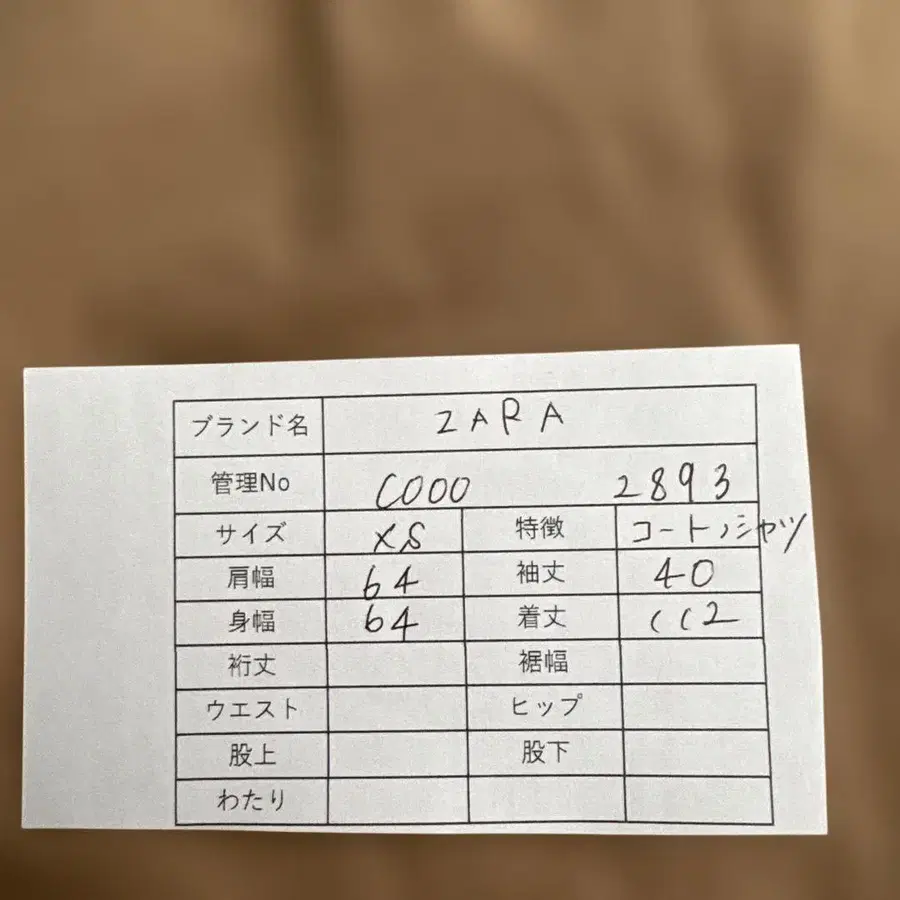 ブランド名 ZARA
管理No C000 2893
サイズ XS 特徴 コート,シャツ
肩幅 64 袖丈 40
身幅 64 着丈 112
裄丈 裾幅
ウエスト ヒップ
股上 股下
わたり